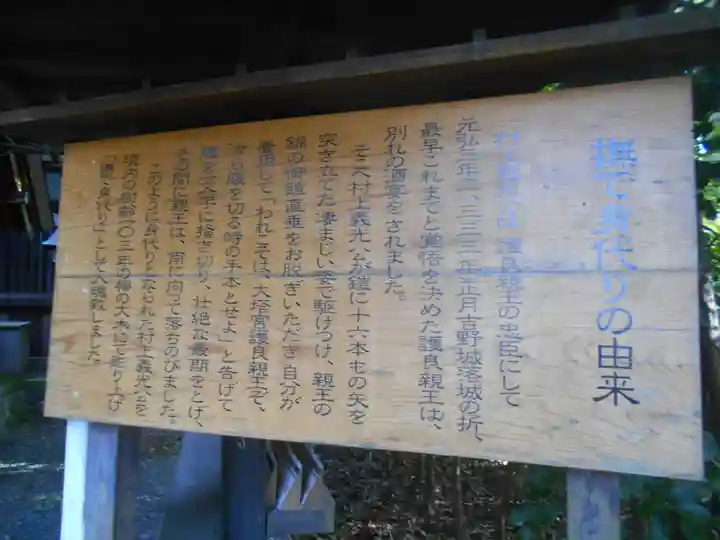 撫で身代りの由来
村上義光公は、護良親王の忠臣にして
元弘三年(一、三三三年)正月吉野城落城の折、
最早これまでと覚悟を決めた護良親王は、
別れの酒宴をされました。
そこへ村上義光公が鎧に十六本もの矢を
突き立てた凄まじい姿で駆けつけ、親王の
錦の鎧直垂をお脱ぎいただき自分が
着用して「われこそは、大塔宮護良親王ぞ、
汝ら腹を切る時の手本とせよ」と告げて
腹を一文字に掻き切り、壮絶な最期をとげ、
その間に親王は、南に向って落ちのびました。
このように身代りとなられた村上義光公を
境内の樹齢一〇三年の欅の大木にて彫り上げ
「撫で身代り」として入魂致しました。